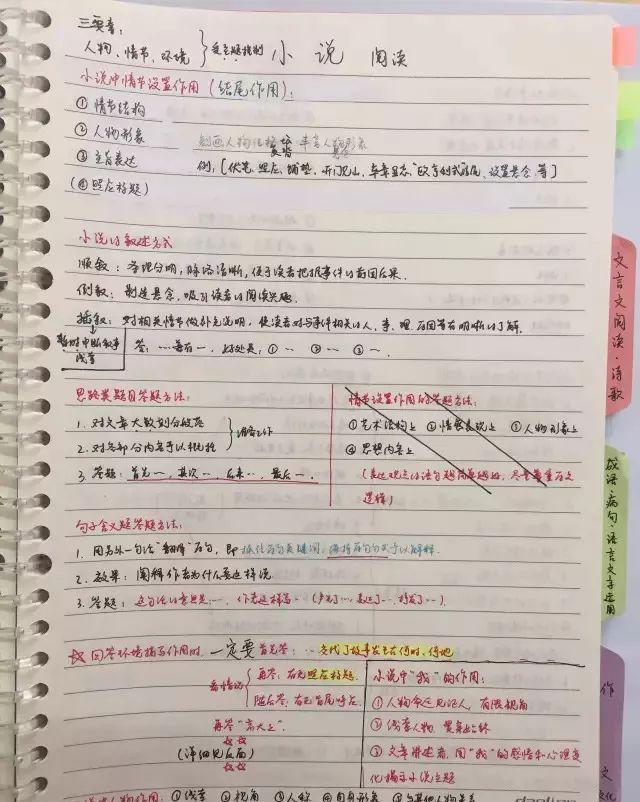 三要素:
人物、情节、环境
小说 阅读
小说中情节设置作用(结尾作用):
① 情节结构
② 人物形象 刻画人物性格 丰富人物形象
③ 主旨表达 例:[伏笔、照应、铺垫、开门见山、卒章显志、"欧·亨利式"结尾、设置悬念 等]
(④ 照应标题)
小说的叙述方式
顺叙:条理分明,脉络清晰,便于读者把握事件的前因后果.
倒叙:制造悬念,吸引读者的阅读兴趣.
插叙:对相关情节做补充说明,使读者对与事件相关的人、事、理、原因等有明晰的了解.
暂时中断叙事线索
答:…着有一,好处是:①… ②… ③…
思路类题目答题方法:
1. 对文章大致划分段落
2. 对各部分内容予以概括
3. 答题:首先…,其次…,后来…,最后….
情节设置作用的答题方法:
① 艺术结构上 ② 情感表现上 ③ 人物形象上
④ 思想内容上
句子含义题答题方法:
1. 用另外一句话"翻译"原句,即抓住原句关键词,
2. 效果:阐释作者为什么要这样说
3. 答题:这句话的意思是…,作者这样写…(声明了…,表达了…,抒发了…).
☆回答环境描写作用时,一定要首先答:…交代了故事发生在何时、何地
看情况
再答,有无照应标题.
随后答,有无首尾呼应.
再答"高大上".
(详细见后面)
小说中"我"的作用:
① 人物命运见证人,有限视角
② 线索人物,贯穿始终
③ 文章讲述者,用"我"的感情和心理变
化揭示小说主题
文言文阅读·诗歌
成语·病句·语言文字运用
作
① 线索 ② 视角 ③ 人称 ④ 自身形象